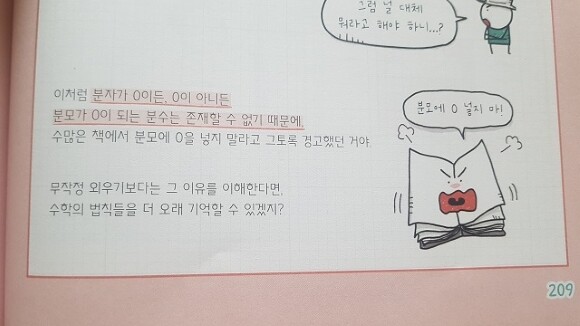 그럼 널 대체
뭐라고 해야 하니...?
이처럼 분자가 0이든, 0이 아니든
분모가 0이 되는 분수는 존재할 수 없기 때문에,
수많은 책에서 분모에 0을 넣지 말라고 그토록 경고했던 거야.
분모에 0 넣지 마!
무작정 외우기보다는 그 이유를 이해한다면,
수학의 법칙들을 더 오래 기억할 수 있겠지?
209